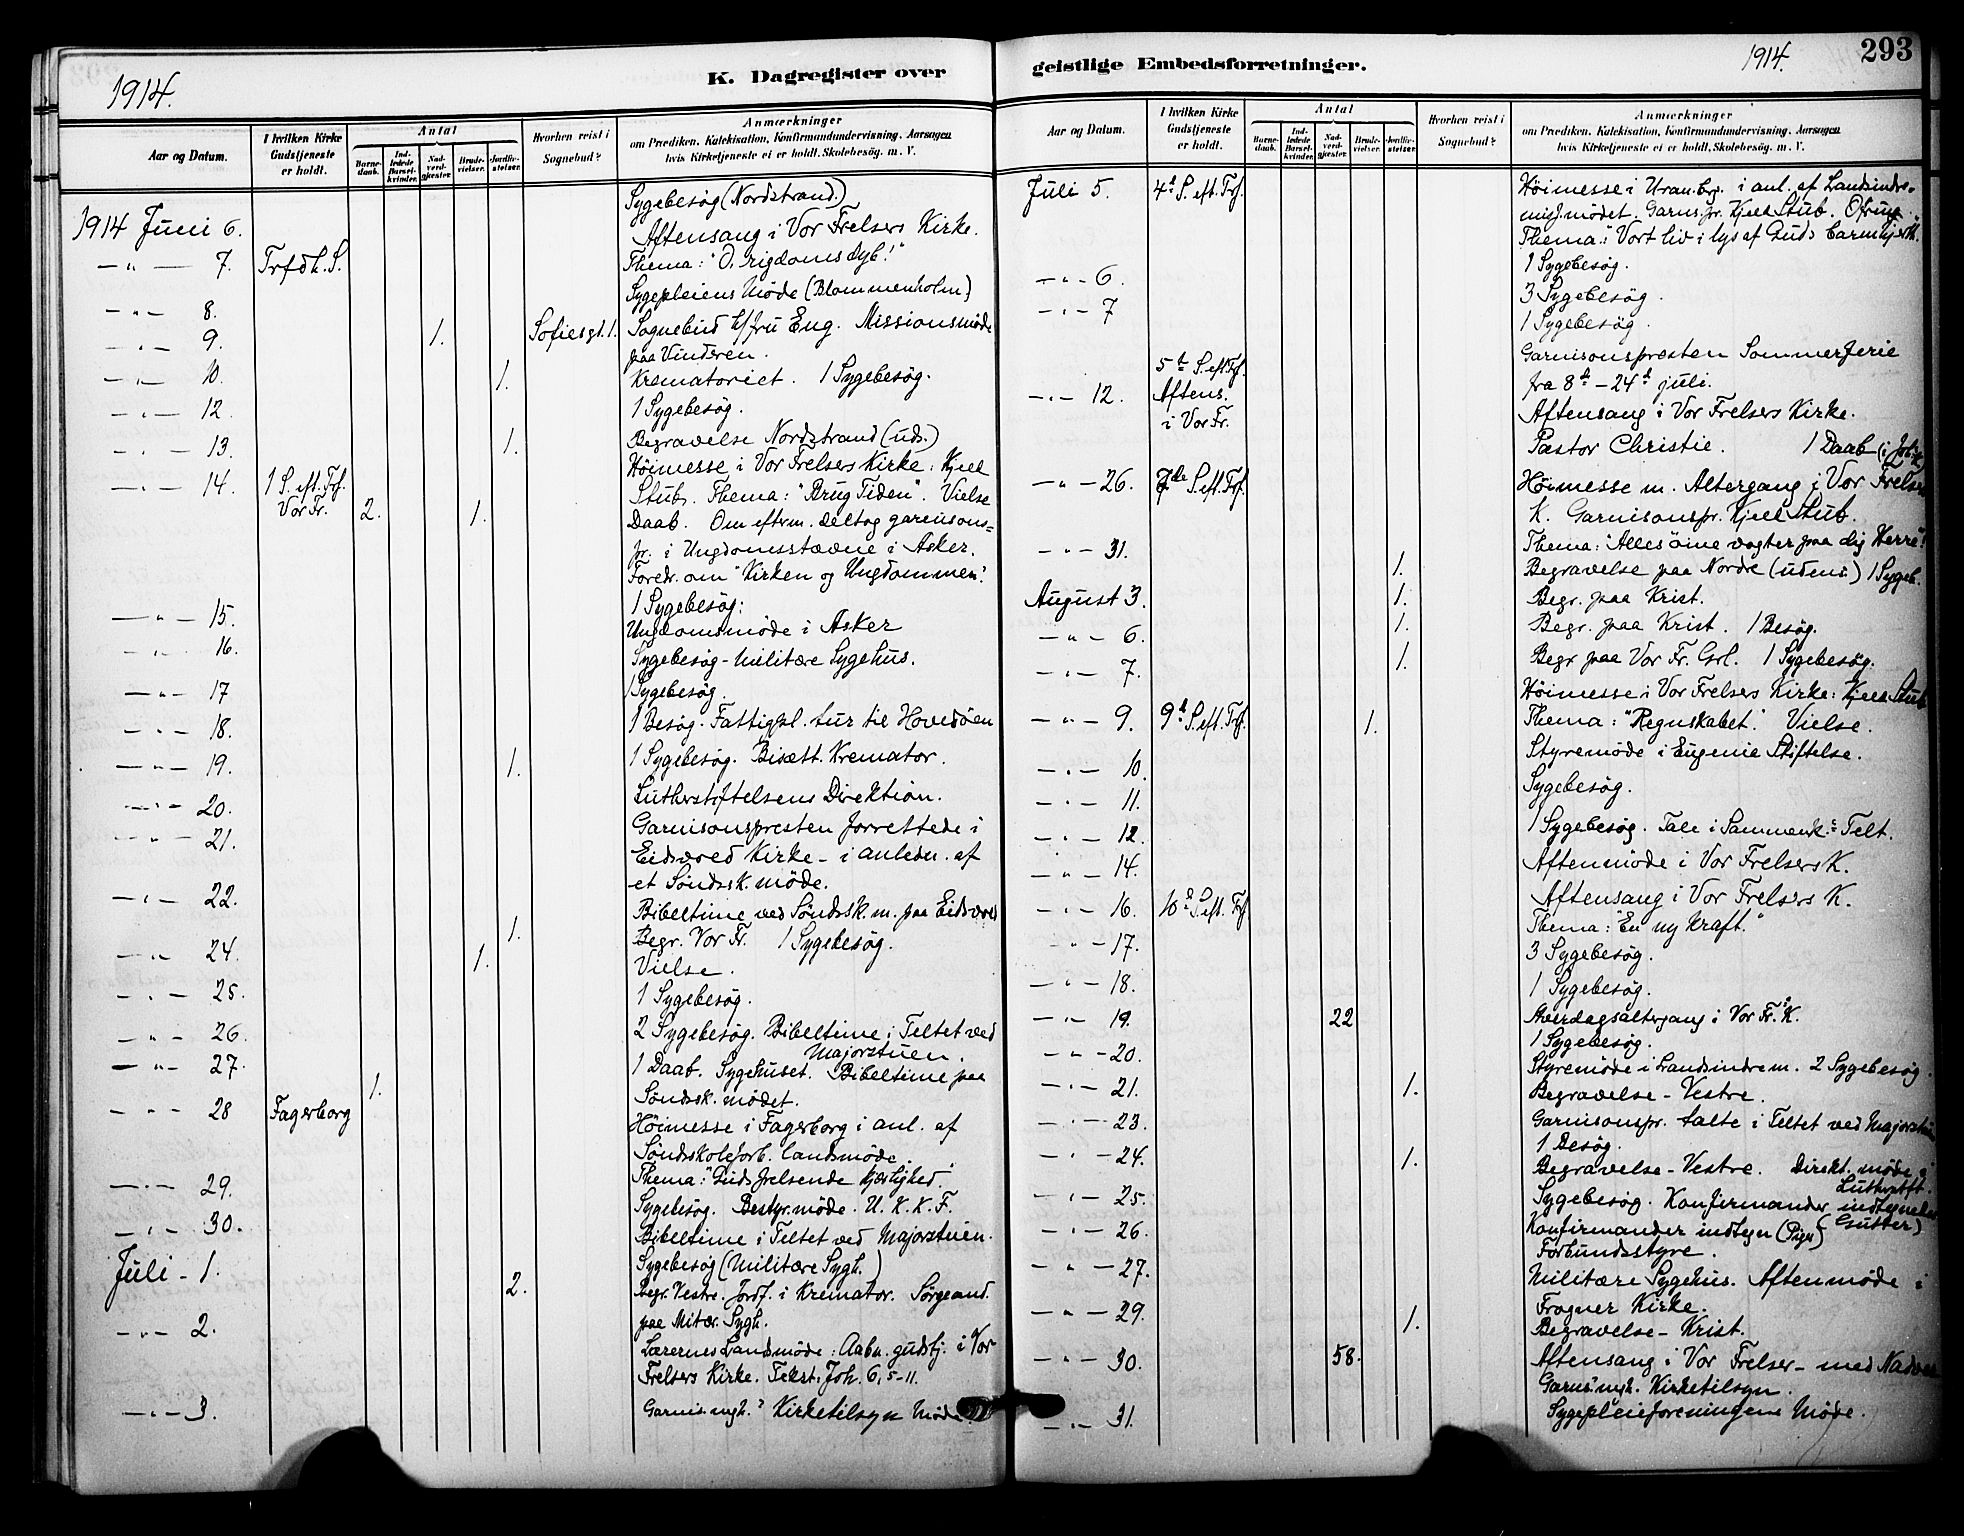 1914.
K. Dagregister over
Aar og Datum.
I hvilken Kirke Gudstjeneste er holdt.
Antal
Barne-daab.
Ind-ledede Barsel-kvinder.
Nad-verd-gjester.
Brude-vielser.
Jordfæ-stelser.
Hvorhen reist i Sognebud?
Anmærkninger
om Prædiken. Katekisation, Konfirmandundervisning. Aarsagen
hvis Kirketjeneste ei er holdt. Skolebesög. m. V.
Sygebesøg (Nordstrand.)
1914 Juni 6.
Aftensang i Vor Frelsers Kirke.
— " — 7. Trfdh. S. Thema: "O, rigdoms dyb!"
Sygepleiens Møde (Blommenholm)
— " — 8.
— " — 9. 1. Sofiesgt. 1. Sognebud h/fru Eng. Missionsmøde
paa Vinderen.
— " — 10. 1. Krematoriet. 1 Sygebesøg.
— " — 12. 1 Sygebesøg.
— " — 13. 1. Begravelse Nordstrand (uds.)
Høimesse i Vor Frelsers Kirke: Kjell
— " — 14. 1 S. eft. Trf. Stub. Thema: "Brug Tiden". Vielse
Vor Fr. 2. 1. Daab. Om efterm. deltog garnisons=
pr. i Ungdomsstævne i Asker.
Foredr. om "Kirken og Ungdommen".
— " — 15. 1 Sygebesøg:
Ungdomsmøde i Asker
— " — 16. Sygebesøg - Militære Sygehus.
— " — 17 1 Sygebesøg.
— " — 18. 1 Besøg. Fattigpl. tur til Hovedøen
— " — 19. 1. 1 Sygebesøg. Bisætt. Kremator.
— " — 20. Lutherstiftelsens Direktion.
— " — 21. Garnisonspresten forrettede i
Eidsvold Kirke - i anledn. af
et Søndssk. møde.
— " — 22. Bibeltime ved Søndssk. m. paa Eidsvold
1. Begr. Vor Fr. 1 Sygebesøg.
— " — 24. 1. Vielse.
— " — 25. 1 Sygebesøg.
— " — 26. 2 Sygebesøg. Bibeltime i Teltet ved
Majorstuen.
— " — 27. 1. 1 Daab. Sygehuset. Bibeltime paa
Søndssk. mødet.
— " — 28 Fagerborg Høimesse i Fagerborg i anl. af
Søndsskoleforb. landsmøde.
Thema: "Guds frelsende kjærlighed.
— " — 29. Sygebesøg. Bestyr. møde. U. K. K. F.
— " — 30. Bibeltime i Teltet ved Majorstuen.
Juli - 1. Sygebesøg (Militære Sygh.)
2. Begr. Vestre. Jordf. i Kremator. Sørgeand.
paa Mitær. Sygh.
— " — 2. Lærernes Landsmøde: Aabn. gudstj. i Vor
Frelsers Kirke. Tekst: Joh. 6, 5-11.
— " — 3. Garnis. mgh. Kirketilsyn Møde.
geistlige Embedsforretninger.
1914. 293
Aar og Datum.
I hvilken Kirke Gudstjeneste er holdt.
Antal
Barne-daab.
Ind-ledede Barsel-kvinder.
Nad-verd-gjester.
Brude-vielser.
Jordfæ-stelser.
Hvorhen reist i Sognebud?
Anmærkninger
om Prædiken. Katekisation, Konfirmandundervisning. Aarsagen
hvis Kirketjeneste ei er holdt. Skolebesög. m. V.
Juli 5. 4d S. eft. Trf. Høimesse i Uran.bg. i anl. af Landsindre-
misj. mødet. Garns. pr. Kjell Stub. Ofring.
Thema: "Vort liv i lys af Guds barmhjertt."
1 Sygebesøg.
— " — 6. 3 Sygebesøg.
— " — 7 1 Sygebesøg.
Garnisonspresten Sommerferie
5te S. eft. Trf. fra 8d - 24d juli.
— " — 12. Aftens. Aftensang i Vor Frelsers Kirke.
i Vor Fr. Pastor Christie. 1 Daab
— " — 26. 7de S. eft. Trf. Høimesse m. Altergang i Vor Frelsers
K. Garnisonspr. Kjell Stub.
Thema: "Alles øine vogter paa dig Herre"!
— " — 31. 1. Begravelse paa Nordre (udens) 1 Sygeb.
August 3. 1. Begr. paa Krist.
— " — 6. 1. Begr. paa Krist. 1 Besøg.
— " — 7. 1. Begr paa Vor Fr. Grl. 1 Sygebesøg.
Høimesse i Vor Frelsers Kirke: Kjell Stub
— " — 9. 9d S. eft. Trf. 1. Thema: "Regnskabet". Vielse.
— " — 10. Styremøde i Eugenie Stiftelse.
— " — 11. Sygebesøg.
— " — 12. 1 Sygebesøg. Tale i Sammenk.s Telt.
— " — 14. Aftenmøde i Vor Frelsers K.
— " — 16. 10d S. eft. Trf. Aftensang i Vor Frelsers K.
Thema: "En ny kraft."
— " — 17. 3 Sygebesøg.
— " — 18. 1 Sygebesøg.
— " — 19. 22 Hverdagsaltergang i Vor Fr.s K.
— " — 20. 1 Sygebesøg.
Styremøde i Landsindrem. 2 Sygebesøg.
— " — 21. 1. Begravelse - Vestre.
— " — 23. Garnisonspr. talte i Teltet ved Majorstuen
1 Besøg.
— " — 24. 1. Begravelse - Vestre. Direkt. møde i
Lutherstft.
— " — 25. Sygebesøg. Konfirmander indtegnelse
(Gutter)
— " — 26. Konfirmander indtegn (Piger)
Forbundsstyre.
— " — 27. Militære Sygehus. Aftenmøde i
Frogner Kirke.
— " — 29. 1. Begravelse - Krist.
— " — 30. 58. Aftensang i Vor Frelser - med Nadver
Garns. mgh. Kirketilsyn.
— " — 31. Sygepleieforeningens Møde.